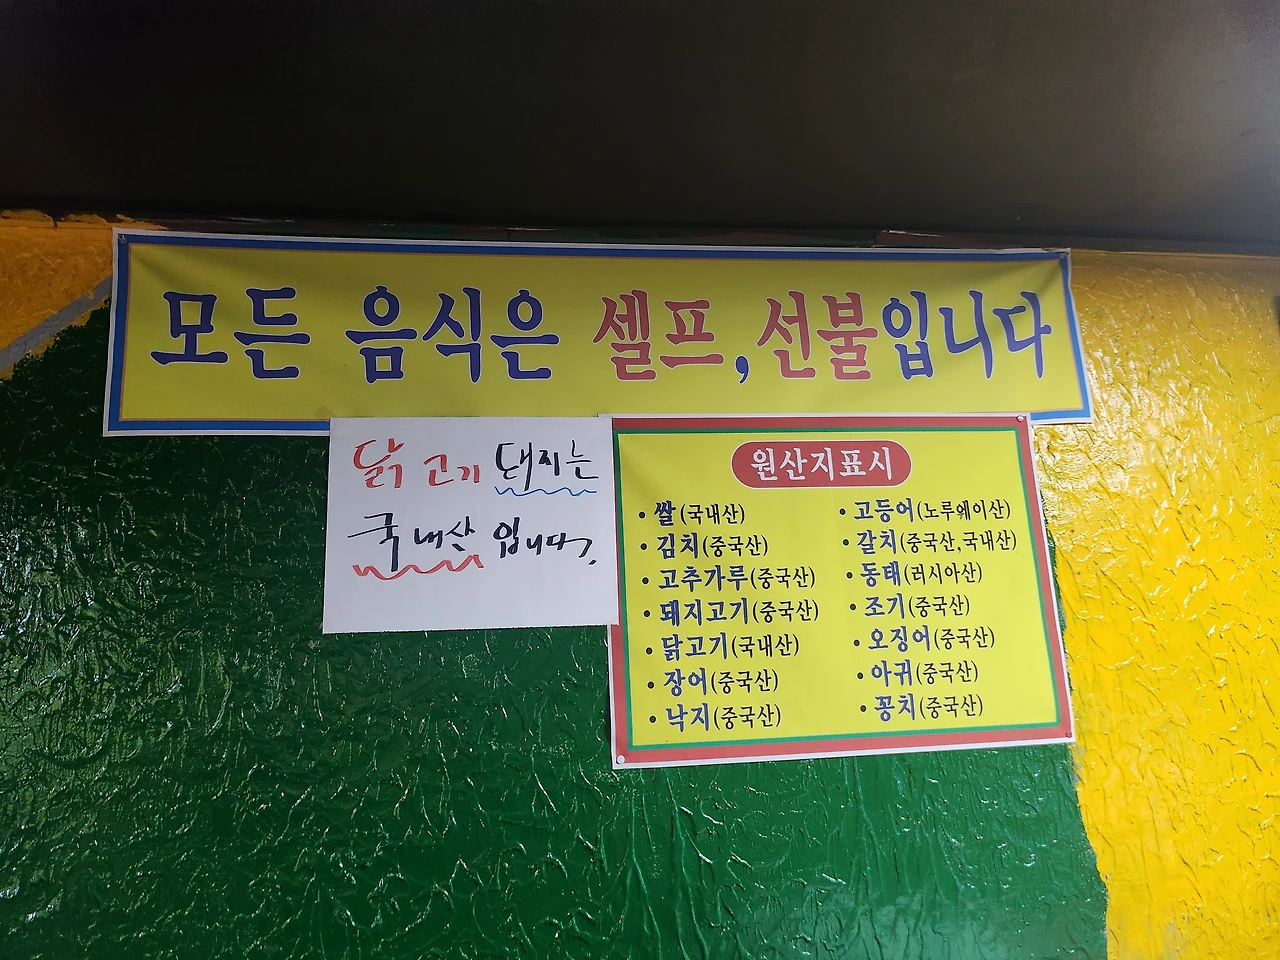 모든 음식은 셀프, 선불입니다
닭고기 돼지는
국내산 입니다.
원산지표시
• 쌀(국내산)
• 김치(중국산)
• 고추가루(중국산)
• 돼지고기(중국산)
• 닭고기(국내산)
• 장어(중국산)
• 낙지(중국산)
• 고등어(노루웨이산)
• 갈치(중국산,국내산)
• 동태(러시아산)
• 조기(중국산)
• 오징어(중국산)
• 아귀(중국산)
• 꽁치(중국산)